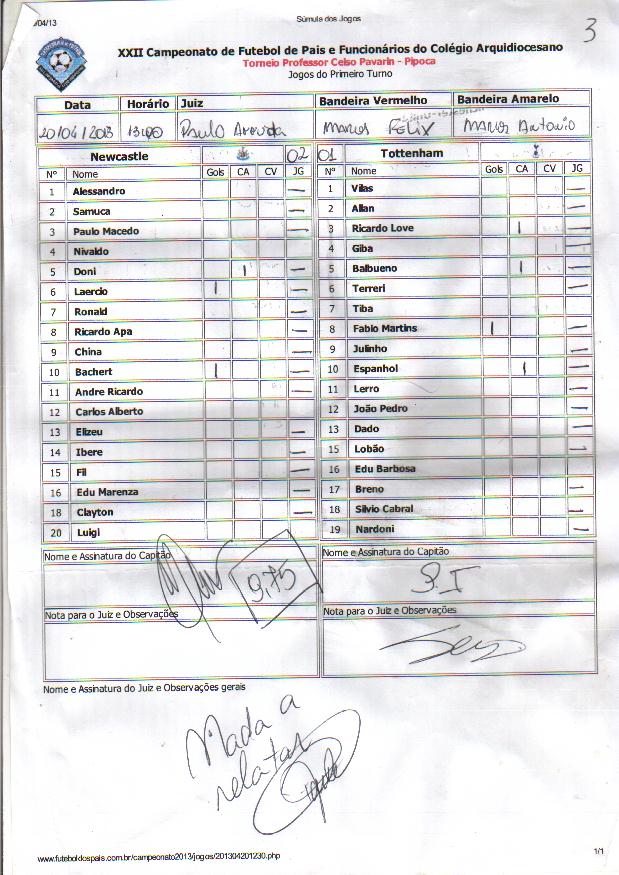 /04/13 Súmula dos Jogos
3
XXII Campeonato de Futebol de Pais e Funcionários do Colégio Arquidiocesano
Torneio Professor Celso Pavarin - Pipoca
Jogos do Primeiro Turno
Data Horário Juiz Bandeira Vermelho Bandeira Amarelo
20/04/2013 13h00 Paulo Arruda Marcos Felix Marcos Antonio
Newcastle 02 01 Tottenham
Nº Nome Gols CA CV JG Nº Nome Gols CA CV JG
1 Alessandro — 1 Vilas —
2 Samuca — 2 Allan —
3 Paulo Macedo — 3 Ricardo Love | —
4 Nivaldo 4 Giba —
5 Doni | — 5 Balbueno | —
6 Laercio | — 6 Terreri —
7 Ronald — 7 Tiba
8 Ricardo Apa — 8 Fabio Martins | —
9 China — 9 Julinho —
10 Bachert | — 10 Espanhol | —
11 Andre Ricardo — 11 Lerro —
12 Carlos Alberto 12 João Pedro —
13 Elizeu — 13 Dado —
14 Ibere — 15 Lobão —
15 Fil — 16 Edu Barbosa
16 Edu Marenza — 17 Breno —
18 Clayton — 18 Silvio Cabral —
20 Luigi 19 Nardoni —
Nome e Assinatura do Capitão Nome e Assinatura do Capitão
9,75
Nota para o Juiz e Observações Nota para o Juiz e Observações
Nome e Assinatura do Juiz e Observações gerais
Nada a
relatar
www.futeboldospais.com.br/campeonato2013/jogos/201304201230.php 1/1